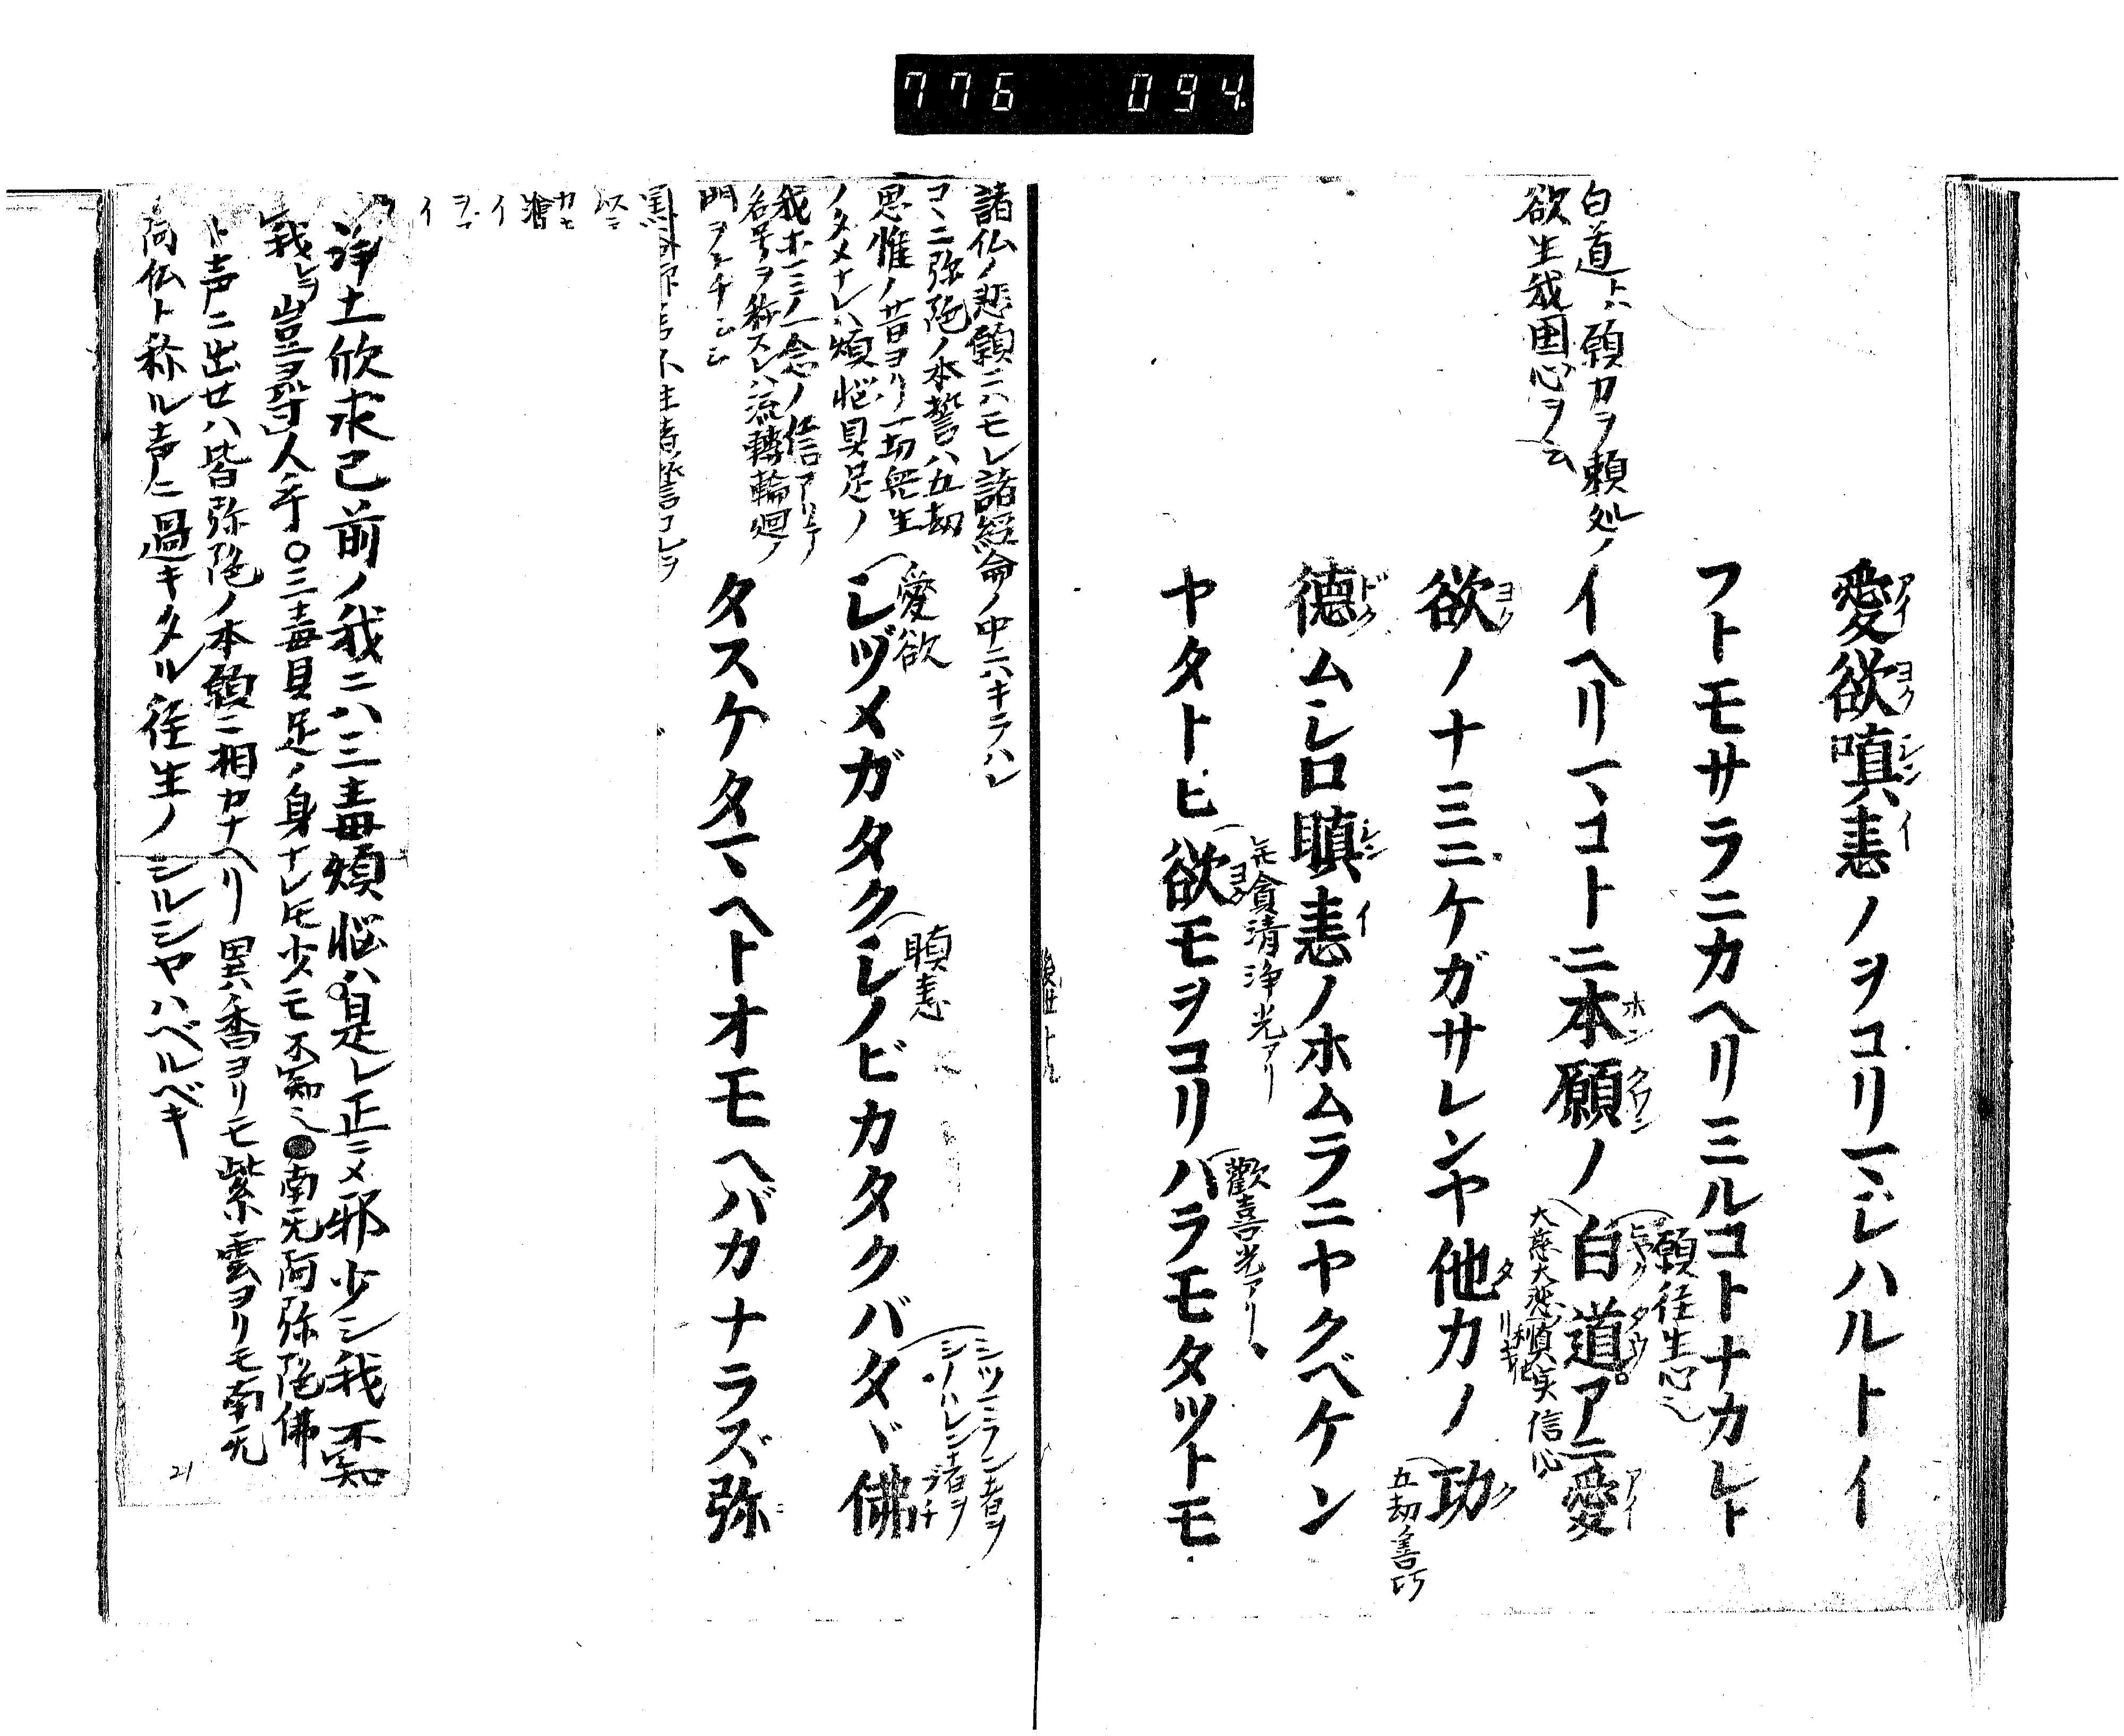 776 094
愛欲嗔恚ノヲコリマジハルトイ
アイヨクシンイ
フトモサラニカヘリミルコトナカレト
イヘリマコトニ本願ノ白道アニ愛
ホンクワン
ヒヤクタウ
アイ
願往生心也
大慈大悲
真実信心
白道トハ願力ヲ頼処ノ
欲生我国心ヲ云
欲ノナミニケガサレンヤ他力ノ功
ヨク
タリキ
ク
五劫ノ善巧
徳ムシロ瞋恚ノホムラニヤクベケン
ドク
シンイ
ヤタトヒ欲モヲコリハラモタツトモ
ヨク
無貪清浄光アリ
歓喜光アリ
諸仏ノ悲願ニハモレ諸経論ノ中ニハキラハレ
コヽニ弥陀ノ本誓ハ五劫
思惟ノ昔ヨリ一切衆生
ノタメナレハ煩悩具足ノ
我ホ一ミノ一念ノ信アリテ
名号ヲ称スレハ流轉輪廻ノ
門ヲトチ
シヅメガタクシノビカタクバタヾ佛
愛欲
瞋恚
シツミラン者ヲ
シノハレン者ヲ
タスケタマヘトオモヘバカナラズ弥
ミ
以ニ
カモ
イ
イ
浄土欣求已前ノ我ニハ三毒煩悩ハ是レ正ニメ邪少シ我不知
我レ豈ヲ尋人乎○三毒具足ノ身ナレ𪜈少モ不知也●南无阿弥陀佛
ト声ニ出セハ皆弥陀ノ本願ニ相カナヘリ異香ヨリモ紫雲ヨリモ南无
阿仏ト称ル声ニ過キタル往生ノシルシヤハベルベキ
21